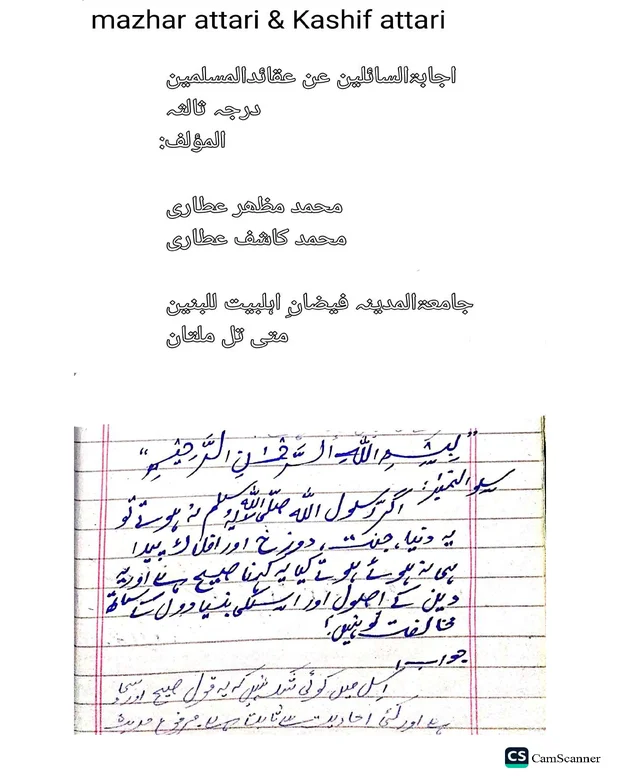 mazhar attari & Kashif attari
اجابۃالسائلین عن عقائدالمسلمین
درجہ ثالثہ
المؤلف:
محمد مظہر عطاری
محمد کاشف عطاری
جامعۃالمدینہ فیضانِ اہلبیت للبنین
متی تل ملتان
"بِسْمِ اللّٰہِ الرَّحْمٰنِ الرَّحِیْمِ"
اگر رسول اللہ صلّی اللہ علیہ وسلم نہ ہوتے تو
یہ دنیا، جنت، دوزخ اور افلاک پیدا
ہی نہ ہوئے ہوتے کیا یہ کہنا صحیح ہے اور یہ
دین کے اصلول اور اسکی بنیادوں کے ساتھ
مخالفت تو نہیں؟
جواب:
اس میں کوئی شک نہیں کہ یہ قول صحیح اور سچا
ہے اور کئی احادیث سے ثابت ہے مرفوع حدیث
CS CamScanner